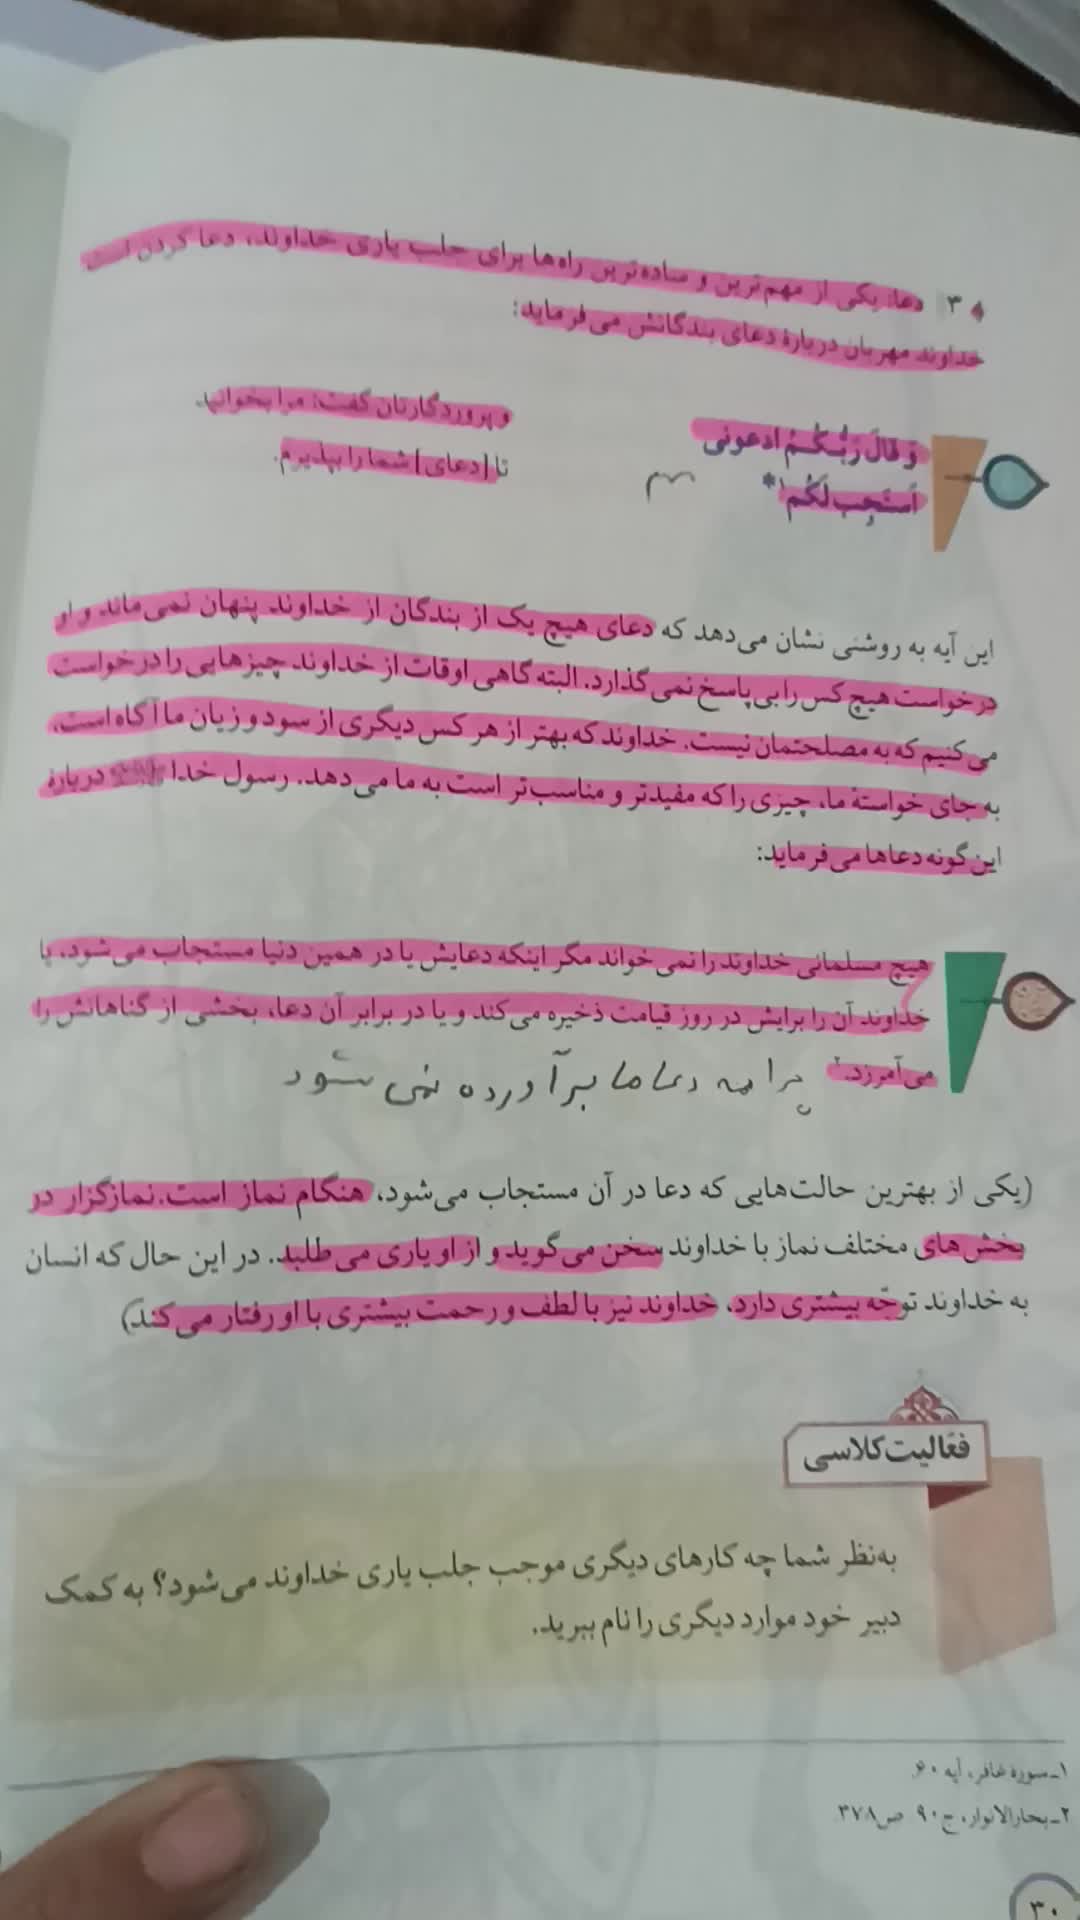 ۳ دعا: یکی از مهم‌ترین و ساده‌ترین راه‌ها برای جلب یاری خداوند، دعا کردن است
خداوند مهربان دربارهٔ دعای بندگانش می‌فرماید:
وَ قالَ رَبُّکُمُ ادعونی
اَستَجِب لَکُم۱*
و پروردگارتان گفت: مرا بخوانید
تا [دعای] شما را بپذیرم.
این آیه به روشنی نشان می‌دهد که دعای هیچ یک از بندگان از خداوند پنهان نمی‌ماند و او
درخواست هیچ کس را بی‌پاسخ نمی‌گذارد. البته گاهی اوقات از خداوند چیزهایی را درخواست
می‌کنیم که به مصلحتمان نیست. خداوند که بهتر از هر کس دیگری از سود و زیان ما آگاه است،
به جای خواستهٔ ما، چیزی را که مفیدتر و مناسب‌تر است به ما می‌دهد. رسول خدا دربارهٔ
این گونه دعاها می‌فرماید:
هیچ مسلمانی خداوند را نمی‌خواند مگر اینکه دعایش یا در همین دنیا مستجاب می‌شود، یا
خداوند آن را برایش در روز قیامت ذخیره می‌کند و یا در برابر آن دعا، بخشی از گناهانش را
می‌آمرزد.۲
چرا همه دعاها ما برآورده نمی شود
(یکی از بهترین حالت‌هایی که دعا در آن مستجاب می‌شود، هنگام نماز است. نمازگزار در
بخش‌های مختلف نماز با خداوند سخن می‌گوید و از او یاری می‌طلبد. در این حال که انسان
به خداوند توجّه بیشتری دارد، خداوند نیز با لطف و رحمت بیشتری با او رفتار می‌کند)
فعّالیت کلاسی
به‌نظر شما چه کارهای دیگری موجب جلب یاری خداوند می‌شود؟ به کمک
دبیر خود موارد دیگری را نام ببرید.
۱ـ سوره غافر، آیه ۶۰
۲ـ بحارالانوار، ج ۹۰ ص ۳۷۸
۳۰